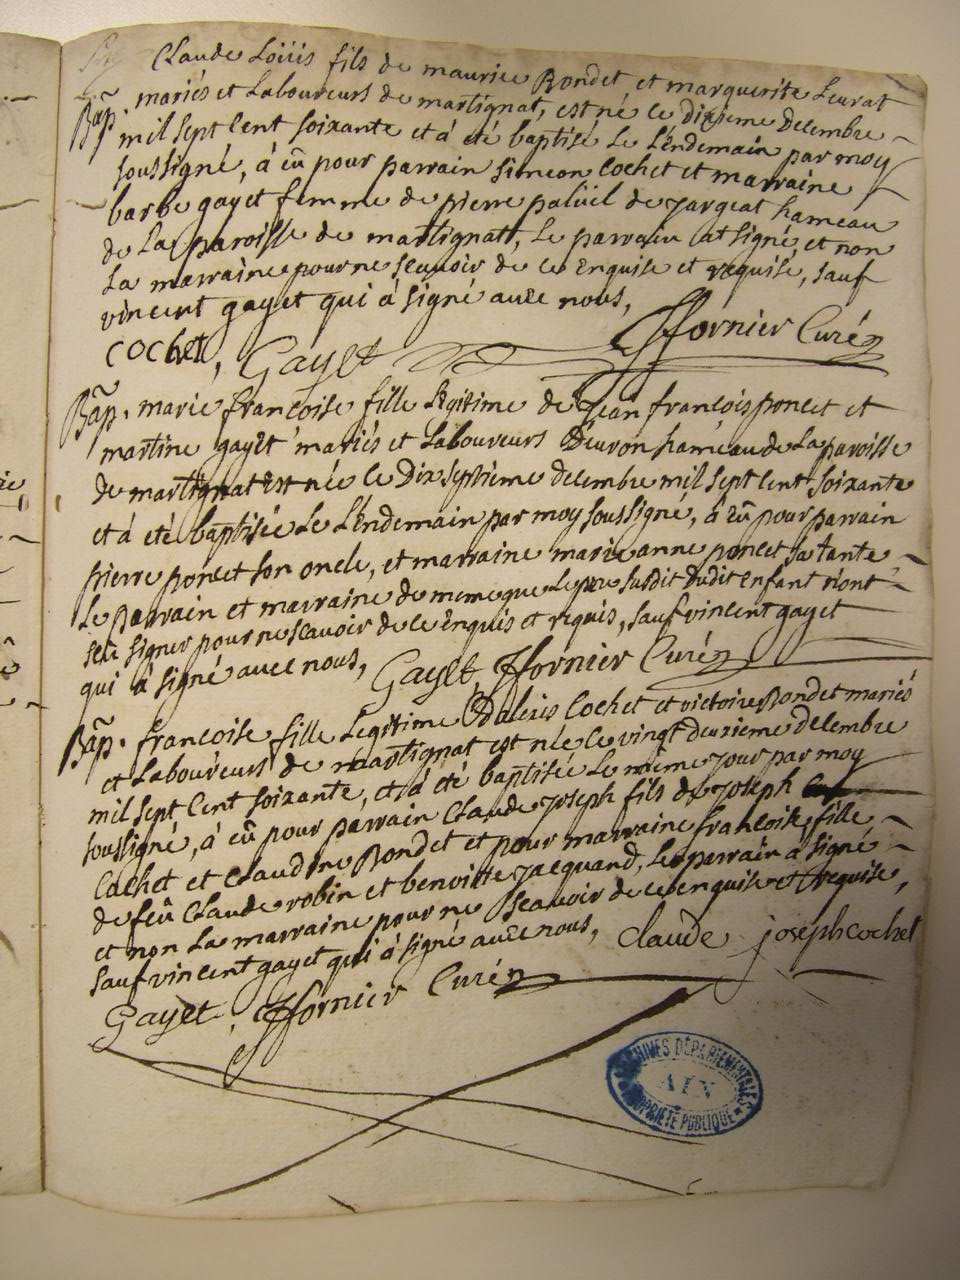 Claude Loüis fils de maurice Rondet, et marguerite Leurat
Bap̃. mariés et Laboureurs de martignat, est né le dixième decembre
mil sept cent soixante et à été baptisé Le Lendemain par moy
soussigné, à eû pour parrain simeon Cochet et marraine
barbe gayet femme de pierre palüel de jargeat hameau
de La paroisse de martignat, Le parrain at signé, et non
La marraine pour ne scauoir de ce enquise et requise, sauf
vincent gayet qui à signé auec nous,
COCHET, Gayet ffornier Curé
Bap̃. marie francoise fille Légitime de Jean françois poncet et
martine gayet mariés et Laboureurs D'euron hameau de La paroisse
de martignat est née le Dix septieme decembre mil sept cent soixante
et à été baptisée Le Lendemain par moy soussigné, à eû pour parrain
pierre poncet son oncle, et marraine marie anne poncet sa tante
Le parrain et marraine de meme que Le pere susdit dudit enfant n'ont
sceu signer pour ne scauoir de ce enquis et requis, sauf vincent gayet
qui à signé auec nous, Gayet, ffornier Curé
Bap̃. francoise fille Legitime D'alexis Cochet et victoire Rondet mariés
et Laboureurs de martignat est née le vingt deuxieme decembre
mil sept cent soixante, et à été baptisée Le meme jour par moy
soussigné, à eû pour parrain Claude joseph fils de joseph
Cochet et Claudine Rondet et pour marraine francoise fille
de feû Claude robin et benoitte jacquand, Le parrain à signé
et non La marraine pour ne scauoir de ce enquise et requise,
sauf vincent gayet qui à signé auec nous, claude joseph cochet
Gayet, ffornier Curé
ARCHIVES DÉPARTEMENTALES
AIN
PROPRIÉTÉ PUBLIQUE